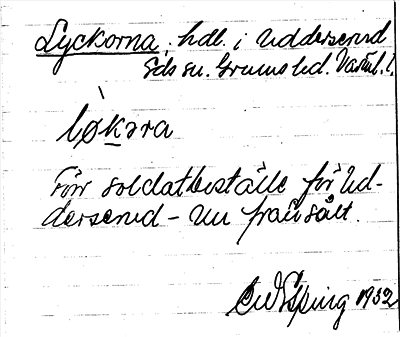 Lyckorna, hdl. i Uddersrud
Eds sn. Grums hd. Värml. l.
lø̀kəra
Förr soldatbeställe för Ud-
dersrud - Nu frånsålt.
1932